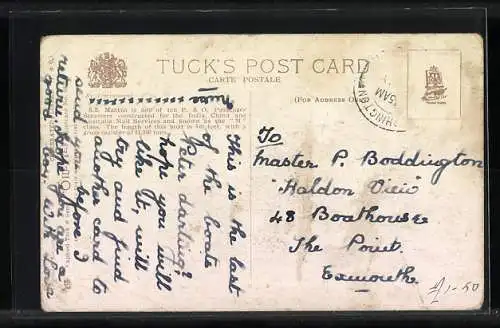 TUCK'S POST CARD
CARTE POSTALE
(FOR ADDRESS ONLY)
S.S. Mantua is one of ten P. & O. Passenger
Steamers constructed for the India, China and
Australia Mail Services and known as the "M"
class. The length of this boat is 540 feet, with a
gross tonnage of
Nurse
This is the last
of the boats
Peter darling?
hope you will
like it, will
try and find
another card to
send you before I
return. Hope for a
good day. With love
To
Master P. Boddington
"Haldon View"
48 Boathouse
The Point.
Exmouth.
1-50